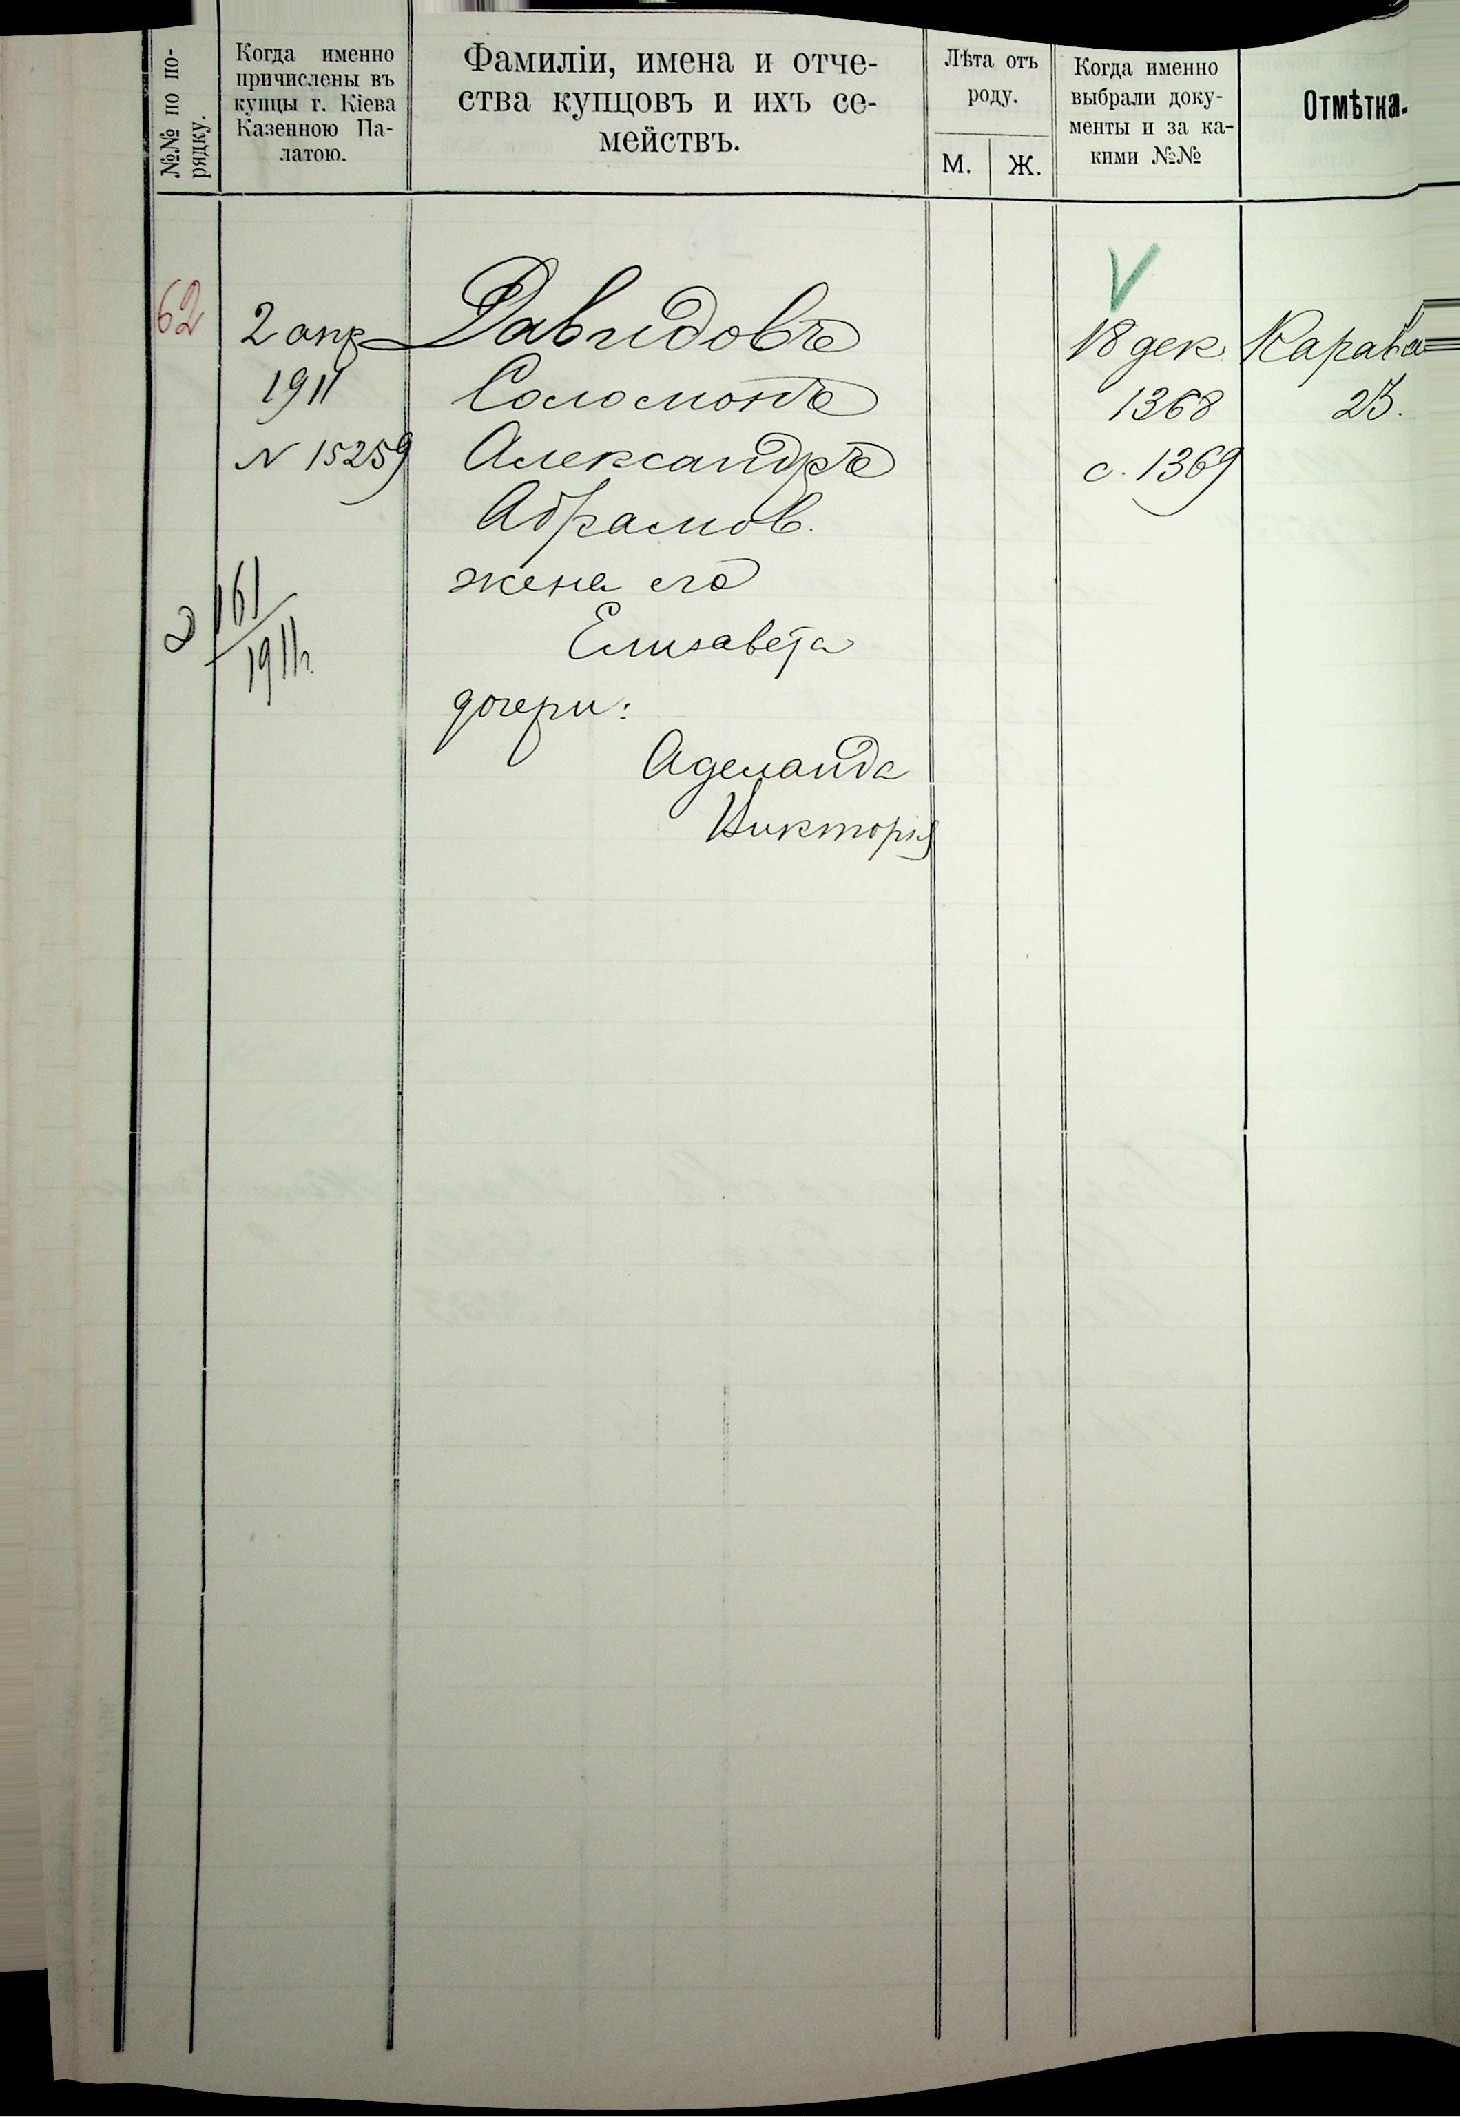 №№ по по-
рядку.
Когда именно
причислены въ
купцы г. Кіева
Казенною Па-
латою.
Фамиліи, имена и отче-
ства купцовъ и ихъ се-
мействъ.
Лѣта отъ
роду.
М.
Ж.
Когда именно
выбрали доку-
менты и за ка-
кими №№
Отмѣтка.
62
2 апр
1911
N 15259
161
1911г.
Давидовъ
Соломонъ
Александръ
Абрамов.
жена его
Елисавета
дочери:
Аделаида
Викторія
V
18 дек.
1368
с. 1369
Карава
25.